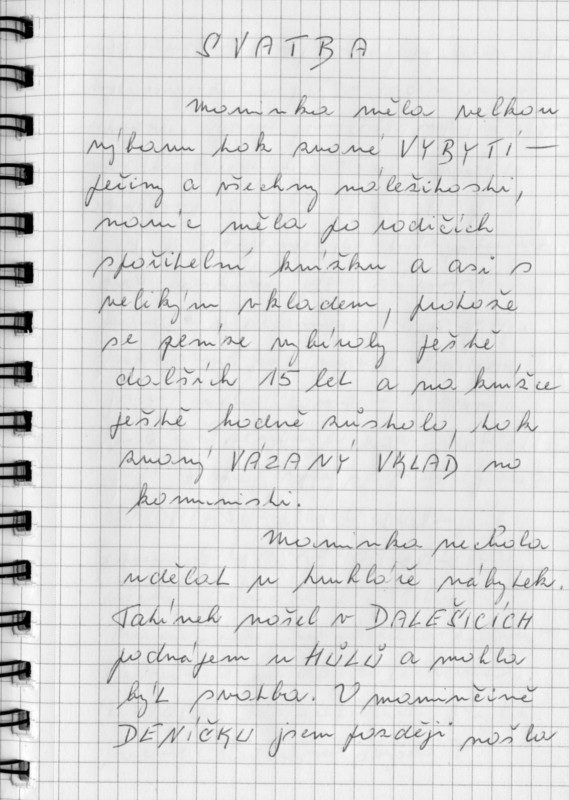 SVATBA
Maminka měla velkou
výbavu tak zvané VYBYTÍ —
peřiny a všechny náležitosti,
navíc měla po rodičích
spořitelní knížku a asi s
velikým vkladem, protože
se peníze vybíraly ještě
dalších 15 let a na knížce
ještě hodně zůstalo, tak
zvaný VÁZANÝ VKLAD na
komunisti.
Maminka nechala
udělat u truhláře nábytek.
Tatínek našel v DALEŠICÍCH
podnájem u HŮLŮ a mohla
být svatba. V maminčině
DENÍČKU jsem později našla